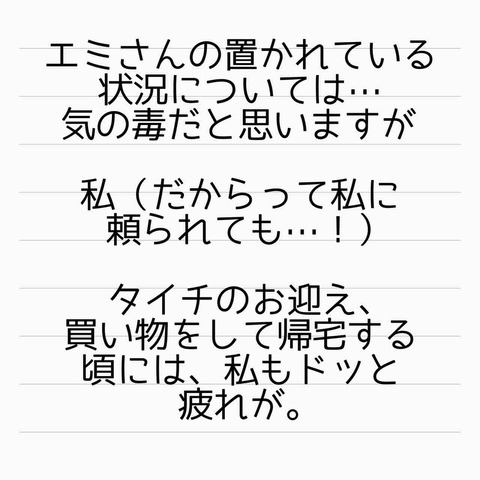 エミさんの置かれている
状況については…
気の毒だと思いますが
私（だからって私に
頼られても…！）
タイチのお迎え、
買い物をして帰宅する
頃には、私もドッと
疲れが。